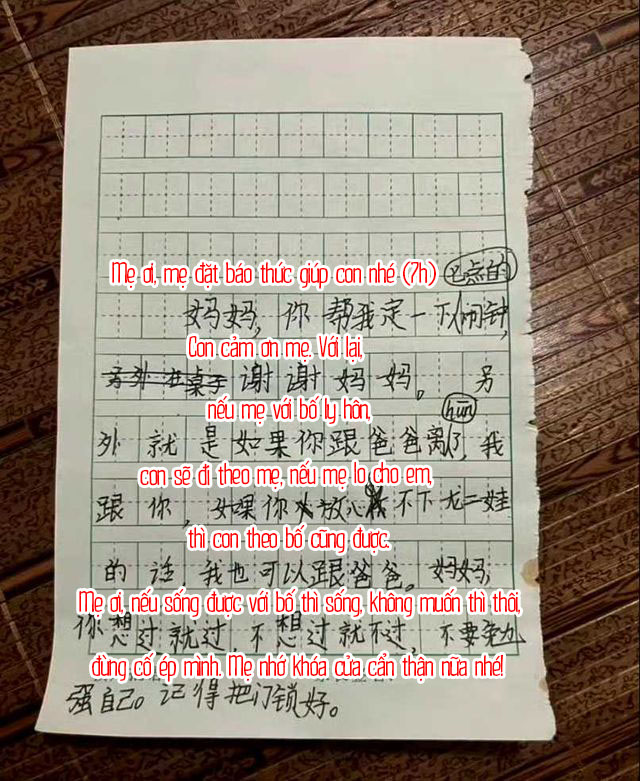 Mẹ ơi, mẹ đặt báo thức giúp con nhé (7h)
七点的
妈妈，你帮我定一下闹钟，
Con cảm ơn mẹ. Với lại,
谢谢妈妈。另
nếu mẹ với bố ly hôn,
hūn
外就是如果你跟爸爸离了，我
con sẽ đi theo mẹ, nếu mẹ lo cho em,
跟你，如果你放心不下尤二娃
thì con theo bố cũng được.
的话，我也可以跟爸爸。妈妈，
Mẹ ơi, nếu sống được với bố thì sống, không muốn thì thôi,
你想过就过，不想过就不过，不要勉
đừng cố ép mình. Mẹ nhớ khóa cửa cẩn thận nữa nhé!
强自己。记得把门锁好。